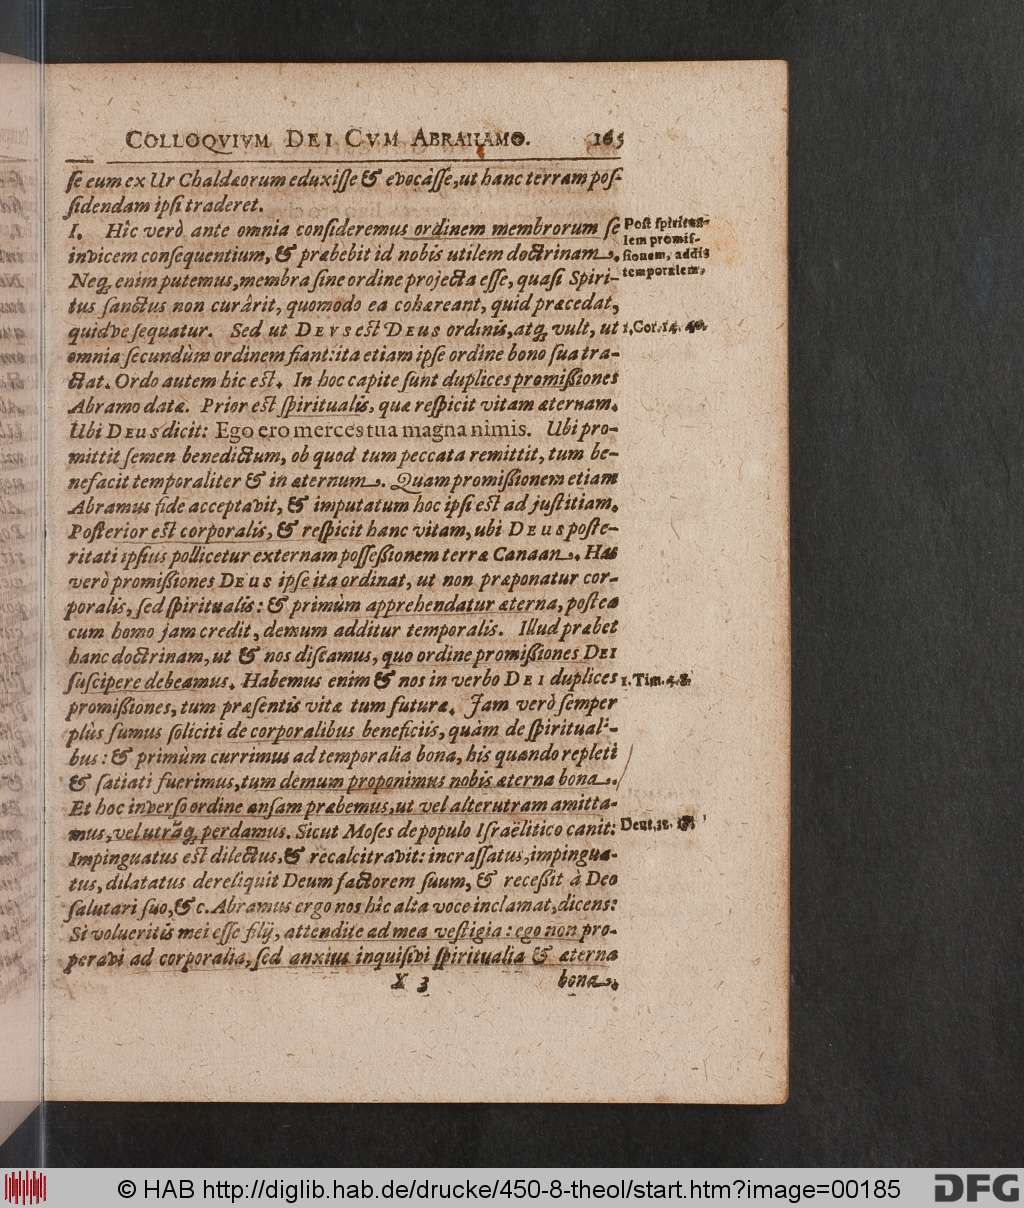 COLLOQVIVM DEI CVM ABRAHAMO. 165
se eum ex Ur Chaldæorum eduxisse & evocâsse, ut hanc terram pos-
sidendam ipsi traderet.
I. Hîc verò ante omnia consideremus ordinem membrorum se
invicem consequentium, & præbebit id nobis utilem doctrinam.
Neq; enim putemus, membra sine ordine projecta esse, quasi Spiri-
tus sanctus non curârit, quomodo ea cohæreant, quid præcedat,
quidve sequatur. Sed ut DEVS est DEUS ordinis, atq; vult, ut
omnia secundùm ordinem fiant: ita etiam ipse ordine bono sua tra-
ctat. Ordo autem hic est. In hoc capite sunt duplices promißiones
Abramo datæ. Prior est spiritualis, quæ respicit vitam æternam.
Ubi DEUS dicit: Ego ero merces tua magna nimis. Ubi pro-
mittit semen benedictum, ob quod tum peccata remittit, tum be-
nefacit temporaliter & in æternum. Quam promißionem etiam
Abramus fide acceptavit, & imputatum hoc ipsi est ad justitiam.
Posterior est corporalis, & respicit hanc vitam, ubi DEUS poste-
ritati ipsius pollicetur externam possessionem terræ Canaan. Has
verò promißiones DEUS ipse ita ordinat, ut non præponatur cor-
poralis, sed spiritualis: & primùm apprehendatur æterna, postea
cum homo jam credit, demum additur temporalis. Illud præbet
hanc doctrinam, ut & nos discamus, quo ordine promißiones DEI
suscipere debeamus. Habemus enim & nos in verbo DEI duplices
promißiones, tum præsentis vitæ tum futuræ. Jam verò semper
plùs sumus soliciti de corporalibus beneficiis, quàm de spirituali-
bus: & primùm currimus ad temporalia bona, his quando repleti
& satiati fuerimus, tum demum proponimus nobis æterna bona.
Et hoc inverso ordine ansam præbemus, ut vel alterutram amitta-
mus, vel utráq; perdamus. Sicut Moses de populo Israëlitico canit:
Impinguatus est dilectus, & recalcitravit: incrassatus, impingua-
tus, dilatatus dereliquit Deum factorem suum, & receßit à Deo
salutari suo, &c. Abramus ergo nos hîc alta voce inclamat, dicens:
Si volueritis mei esse filij, attendite ad mea vestigia: ego non pro-
peravi ad corporalia, sed anxius inquisivi spiritualia & æterna
X 3 bona.
Post spiritua-
lem promis-
sionem, addit
temporalem.
1. Cor. 14. 40.
1. Tim. 4. 8.
Deut. 32. 15.
© HAB http://diglib.hab.de/drucke/450-8-theol/start.htm?image=00185
DFG